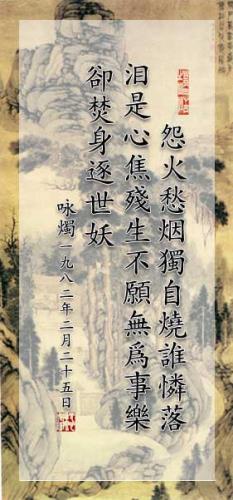 怨火愁烟獨自燒誰憐落
泪是心焦殘生不願無爲事樂
卻焚身逐世妖
咏燭一九八二年二月二十五日